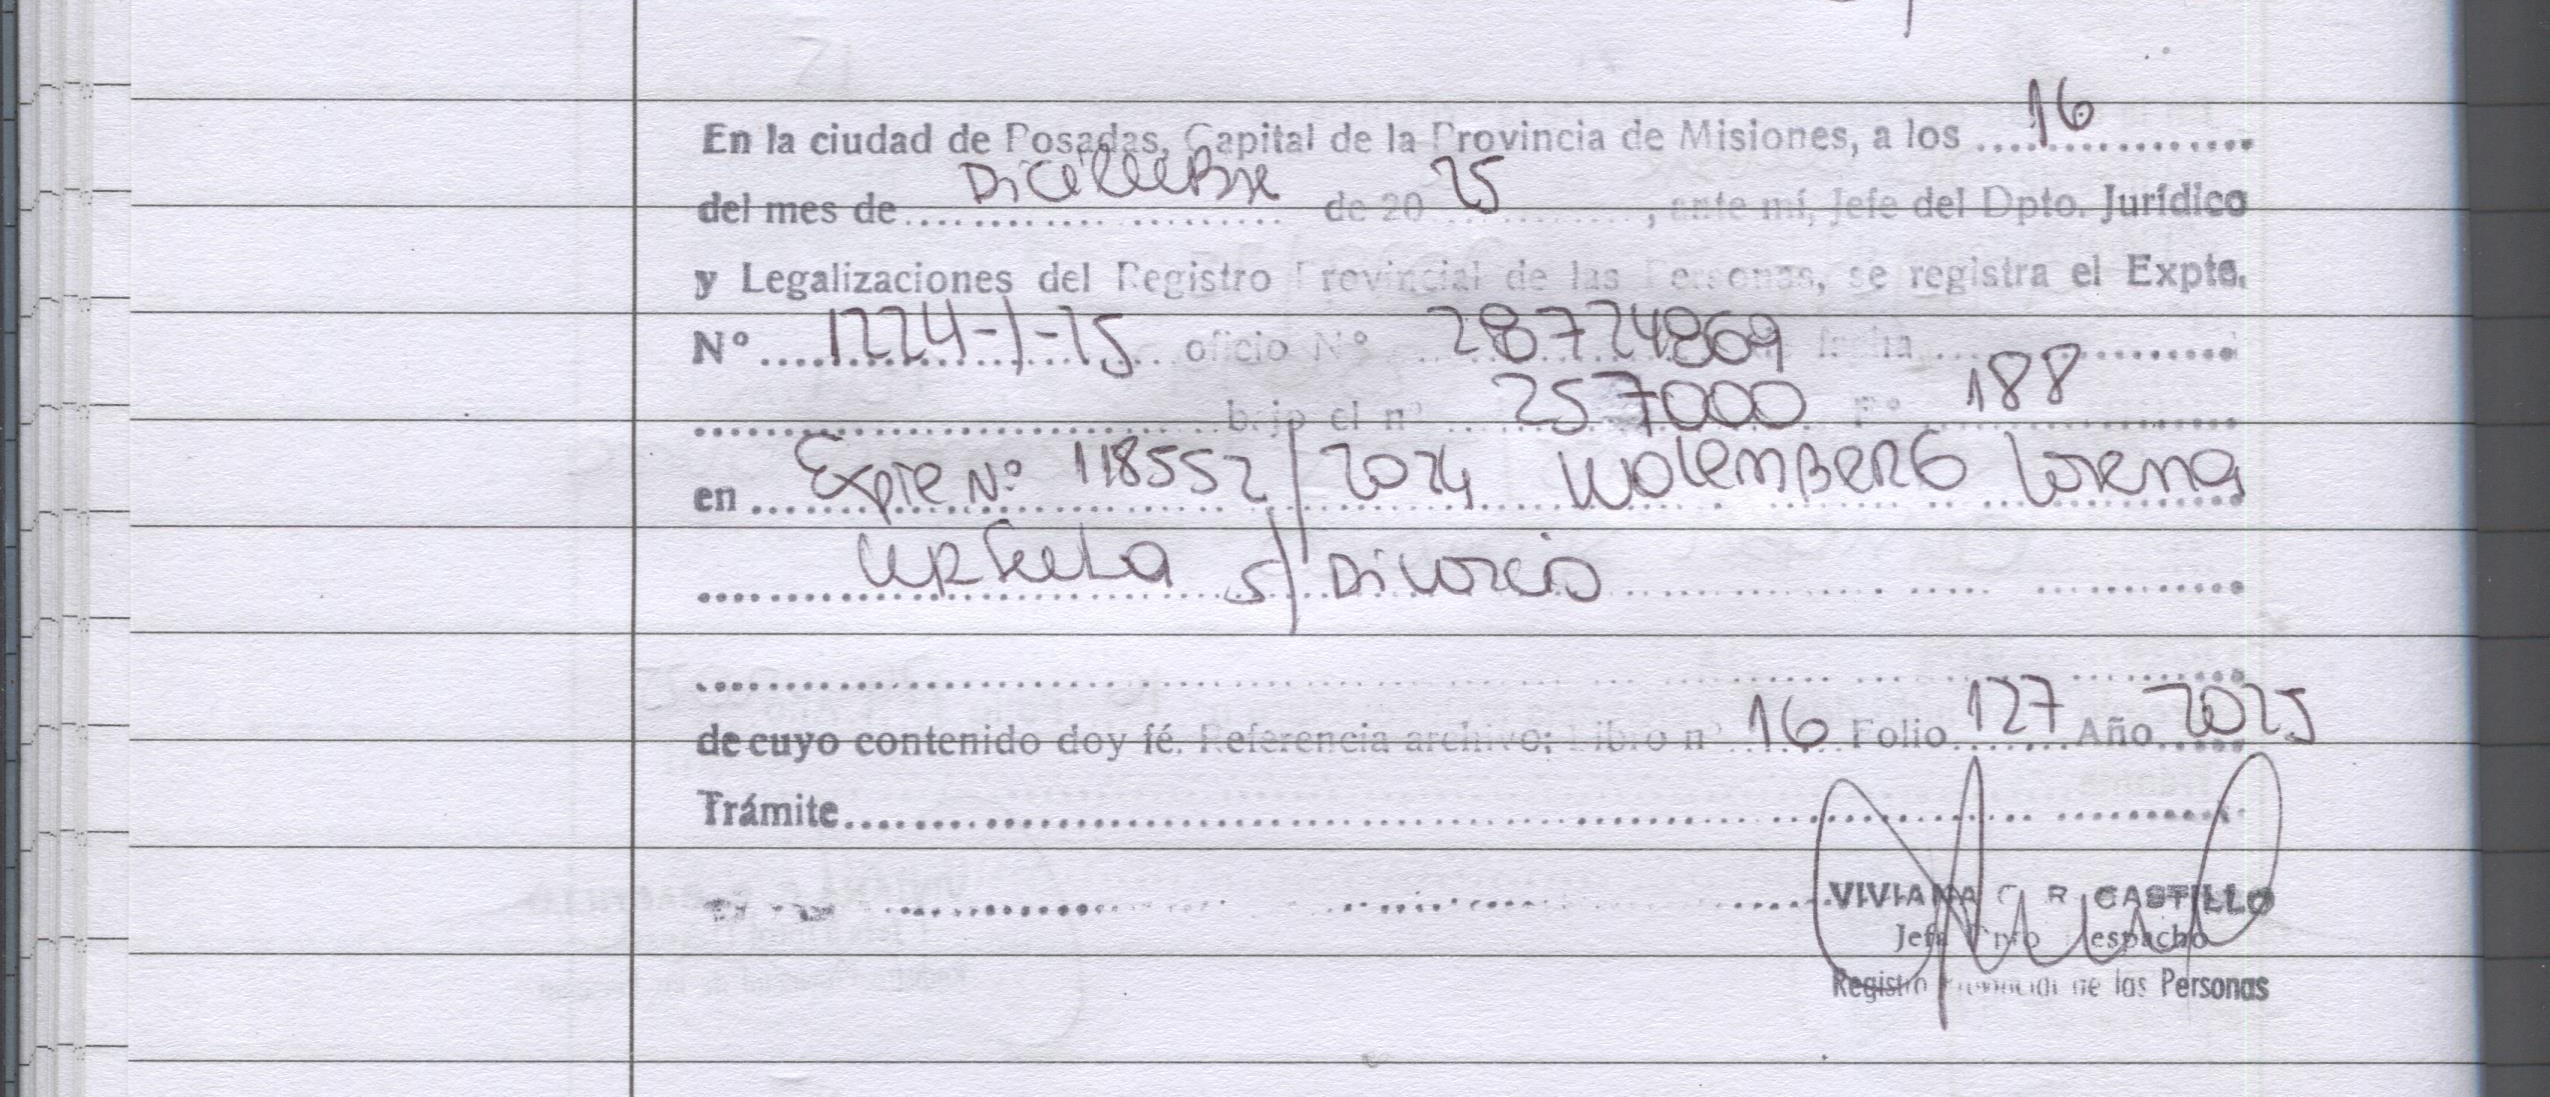 En la ciudad de Posadas, Capital de la Provincia de Misiones, a los 16
del mes de Diciembre de 20 25, ante mí, Jefe del Dpto. Jurídico
y Legalizaciones del Registro Provincial de las Personas, se registra el Expte.
Nº 1224-J-25 oficio Nº 28724869 fecha
bajo el nº 257000 Fº 188
en Expte Nº 118552/2024 Wolemberg Lorena
Ursula s/ Divorcio
de cuyo contenido doy fé. Referencia archivo: Libro nº 16 Folio 127 Año 2025
Trámite
VIVIANA C. R. CASTILLO
Jefa Dpto Despacho
Registro Provincial de las Personas